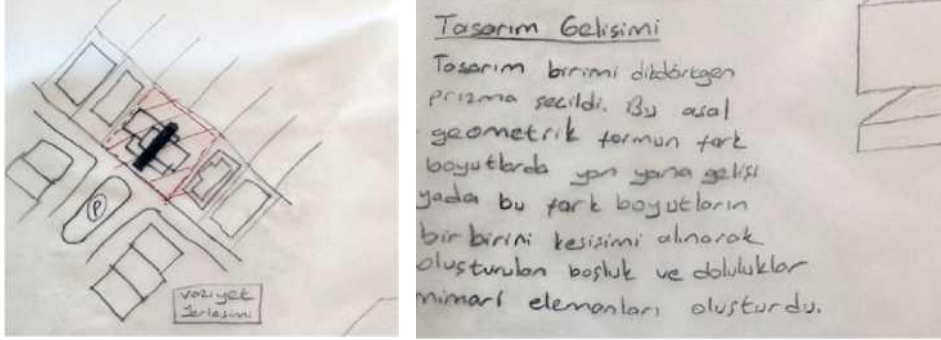 P
vaziyet
Yerleşimi
Tasarım Gelişimi
Tasarım birimi dikdörtgen
prizma seçildi. Bu asal
geometrik formun fark
boyutlarda yan yana gelişi
yada bu fark boyutların
bir birini kesişimi alınarak
oluşturulan boşluk ve doluluklar
mimari elemanları oluşturdu.